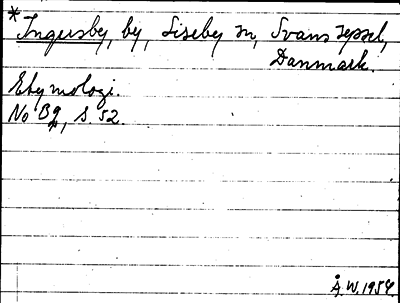 *Ingersby, by, Siseby sn, Svans syssel,
Danmark.
Etymologi.
No Bg, S. 52.
Å. W. 1954.